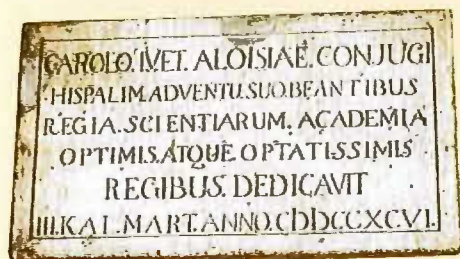 CAROLO.IV.ET. ALOISIAE. CONJUGI
HISPALIM.ADVENTU.SUO.BEANTIBUS
REGIA.SCIENTIARUM. ACADEMIA
OPTIMIS.ATQUE.OPTATISSIMIS
REGIBUS. DEDICAVIT
III.KAL.MART.ANNO.CIƆDCCXCVI.